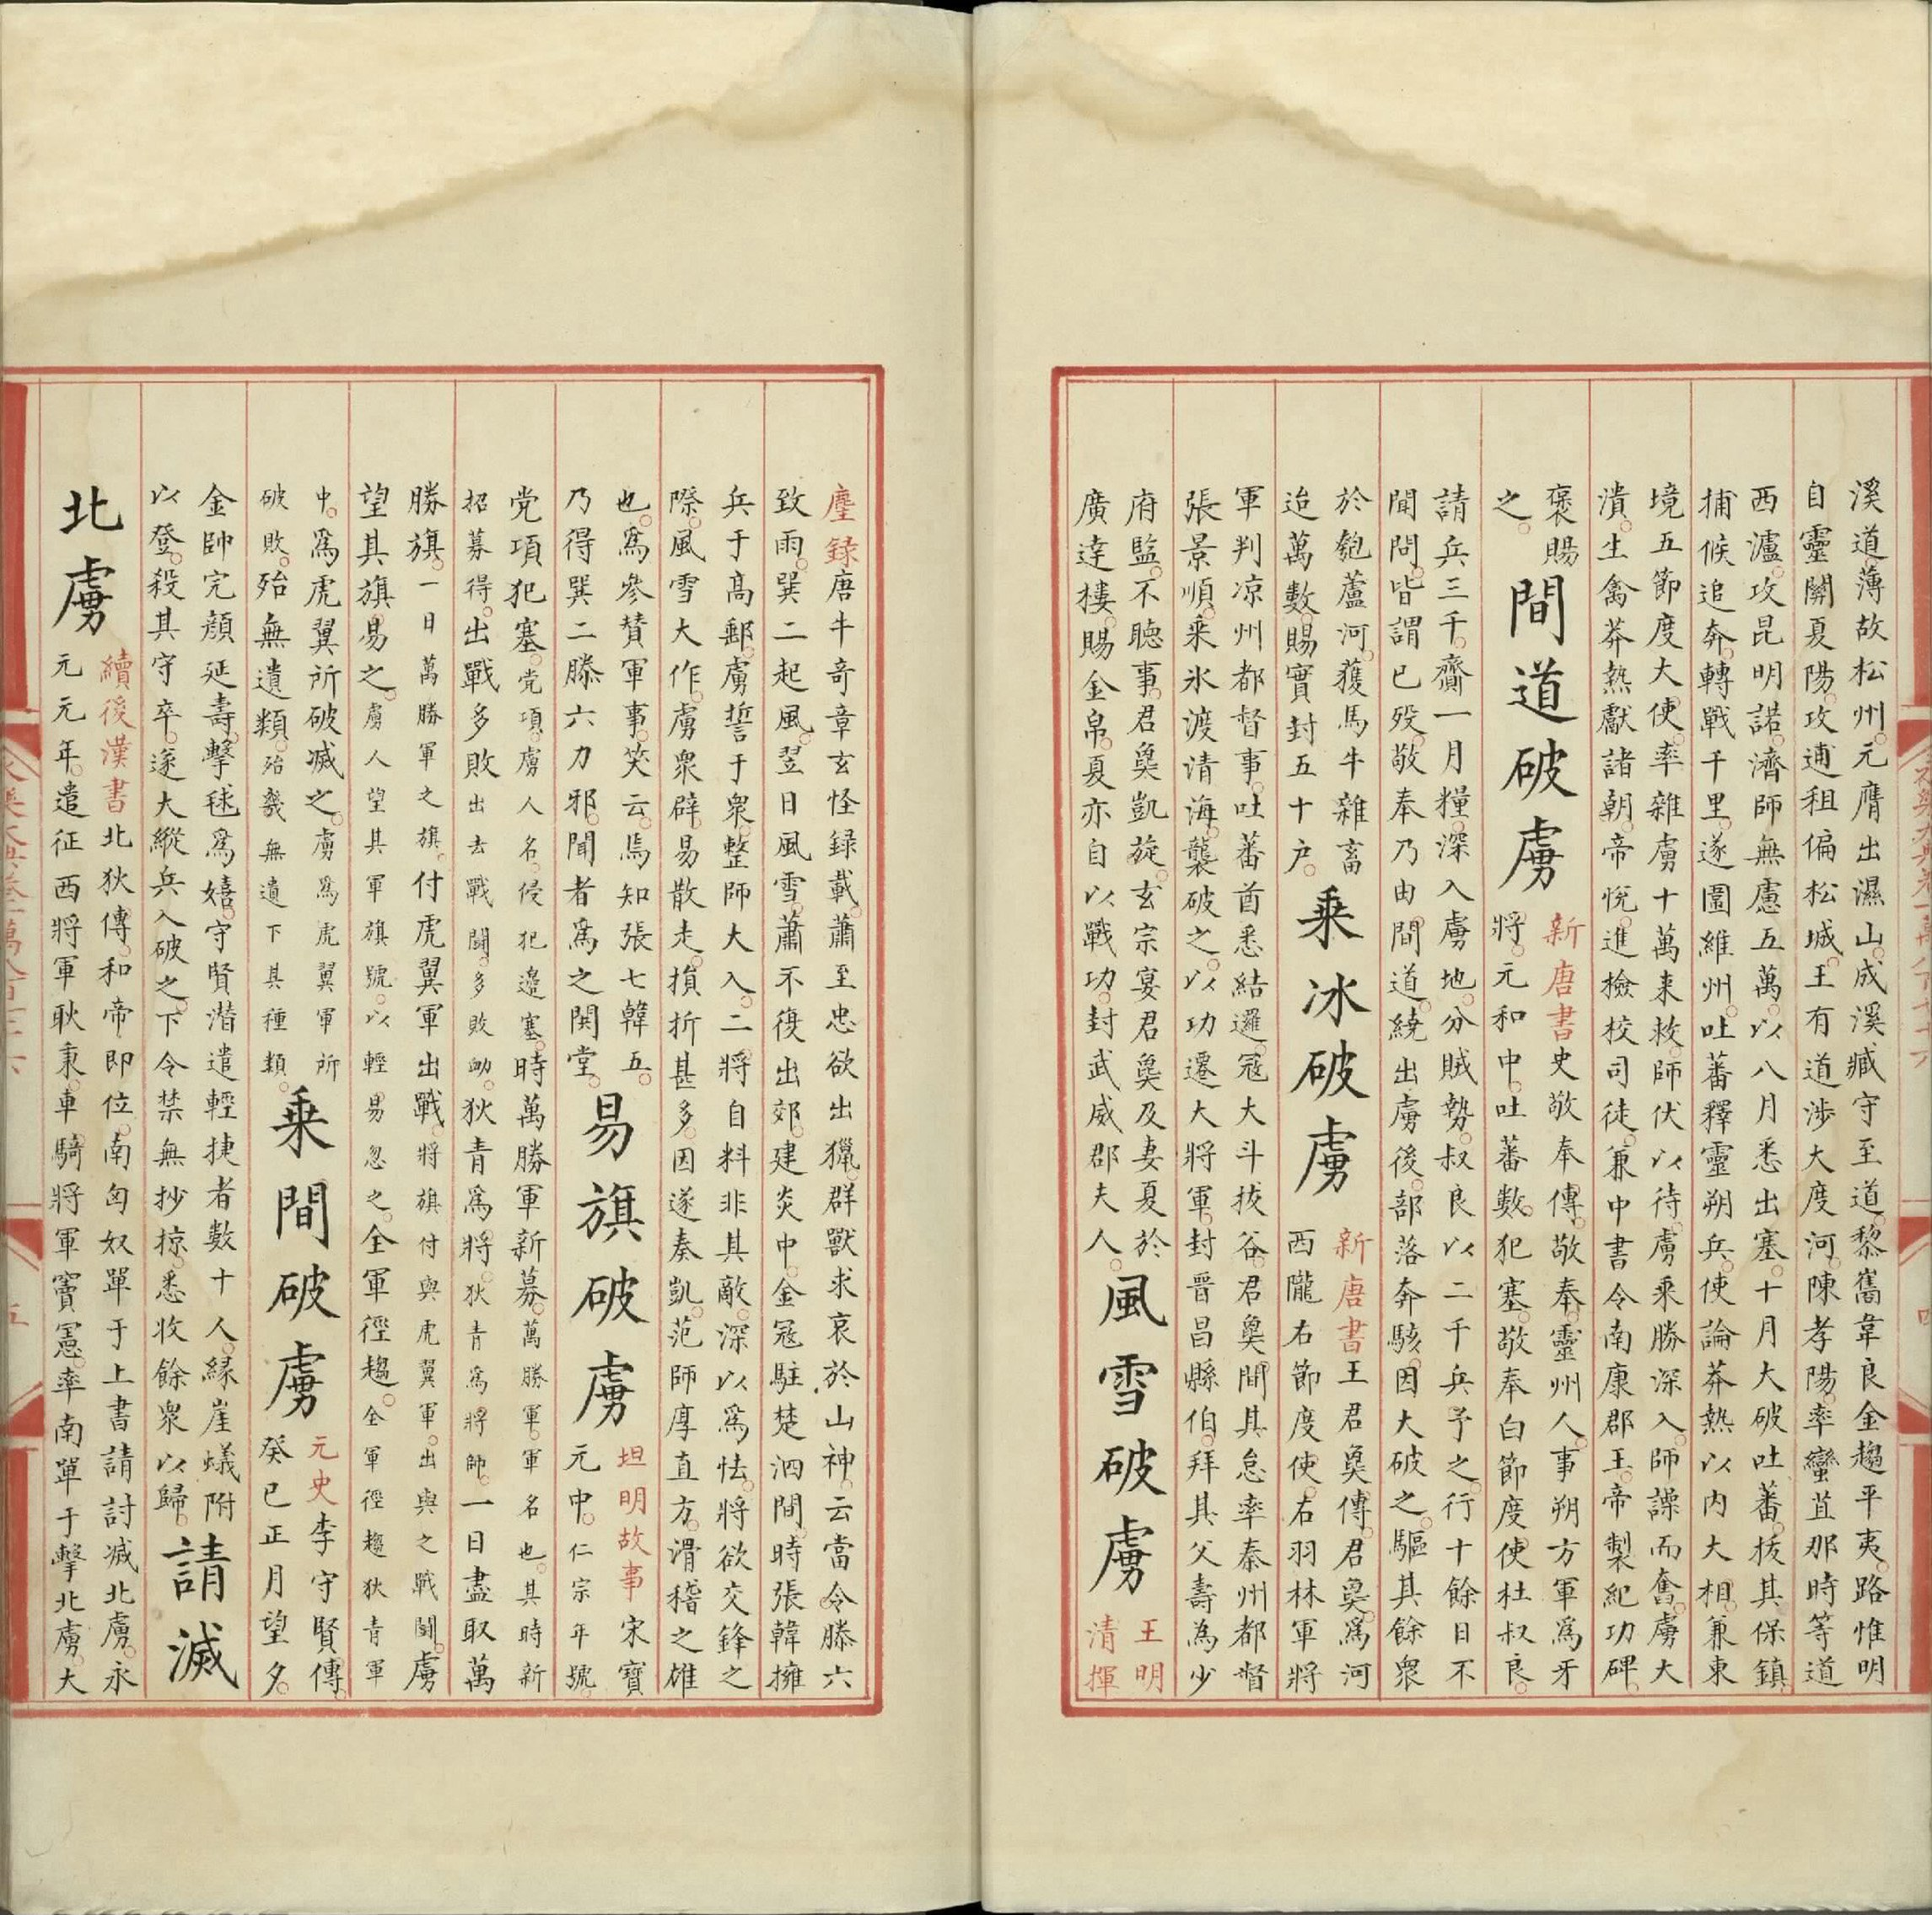 溪道。薄故松州。元膺出濕山。成溪臧守至道。黎嶲韋良金趨平夷。路惟明
自靈關夏陽。攻逋租偏松城。王有道涉大度河。陳孝陽率蠻苴那時等道
西瀘。攻昆明諾濟。師無慮五萬。以八月悉出塞。十月大破吐蕃。拔其保鎮
捕候追奔。轉戰千里。遂圖維州。吐蕃釋靈朔兵。使論莽熱以内大相。兼東
境五節度大使。率雜虜十萬来救。師伏以待。虜乘勝深入。師譟而奮。虜大
潰。生禽莽熱獻諸朝。帝悅。進檢校司徒。兼中書令南康郡王。帝製紀功碑。
褒賜
之。
間道破虜
新唐書史敬奉傳。敬奉。靈州人。事朔方軍爲牙
將。元和中。吐蕃數犯塞。敬奉白節度使杜叔良。
請兵三千。齎一月糧。深入虜地。分賊勢。叔良以二千兵予之。行十餘日不
聞問。皆謂已殁。敬奉乃由間道。繞出虜後。部落奔駭。因大破之。驅其餘衆
於匏蘆河。獲馬牛雜畜
迨萬數。賜實封五十户。
乗冰破虜
新唐書王君㚟傳。君㚟。爲河
西隴右節度使。右羽林軍將
軍判凉州都督事。吐蕃酋悉結邏。冦大斗拔谷。君㚟間其怠率秦州都督
張景順。乘氷渡清海。襲破之。以功遷大將軍。封晉昌縣伯。拜其父壽為少
府監。不聴事。君㚟凱旋。玄宗宴君㚟及妻夏於
廣逹樓。賜金帛。夏亦自以戰功。封武威郡夫人。
風雪破虜
王明
清揮
麈録唐牛竒章玄怪録載。蕭至忠欲出獵。群獸求哀於山神。云當令滕六
致雨。巽二起風。翌日風雪。蕭不復出郊。建炎中。金冦駐楚泗間。時張韓擁
兵于髙郵。虜誓于衆。整師大入。二將自料非其敵。深以爲怯。將欲交鋒之
際。風雪大作。虜衆辟易散走。損折甚多。因遂奏凱。范師厚直方。滑稽之雄
也。爲參賛軍事。笑云。焉知張七韓五。
乃得巽二滕六力邪。聞者爲之閧堂。
易旗破虜
坦明故事宋寳
元中。仁宗年號。
党項犯塞。党項。虜人名。侵犯邉塞。時萬勝軍新募。萬勝軍。軍名也。其時新
招募得。出戰多敗出去戰鬪。多敗衂。狄青爲將。狄青爲將帥。一日盡取萬
勝旗。一日萬勝軍之旗。付虎翼軍出戰。將旗付與虎翼軍。出與之戰鬪。虜
望其旗。易之。虜人望其軍旗號。以輕易忽之。全軍徑趨。全軍徑趨狄青軍
中。爲虎翼所破滅之。虜爲虎翼軍所
破敗。殆無遺類。殆幾無遺下其種類。
乗間破虜
元史李守賢傳。
癸巳正月望夕。
金帥完顔延壽。擊毬爲嬉。守賢潛遣輕捷者數十人。緣崖蟻附
以登。殺其守卒。遂大縱兵入破之。下令禁無抄掠。悉收餘衆以歸。
請滅
北虜
續後漢書北狄傳。和帝即位。南匈奴單于上書請討滅北虜。永
元元年。遣征西將軍耿秉。車騎將軍竇憲。率南單于擊北虜。大